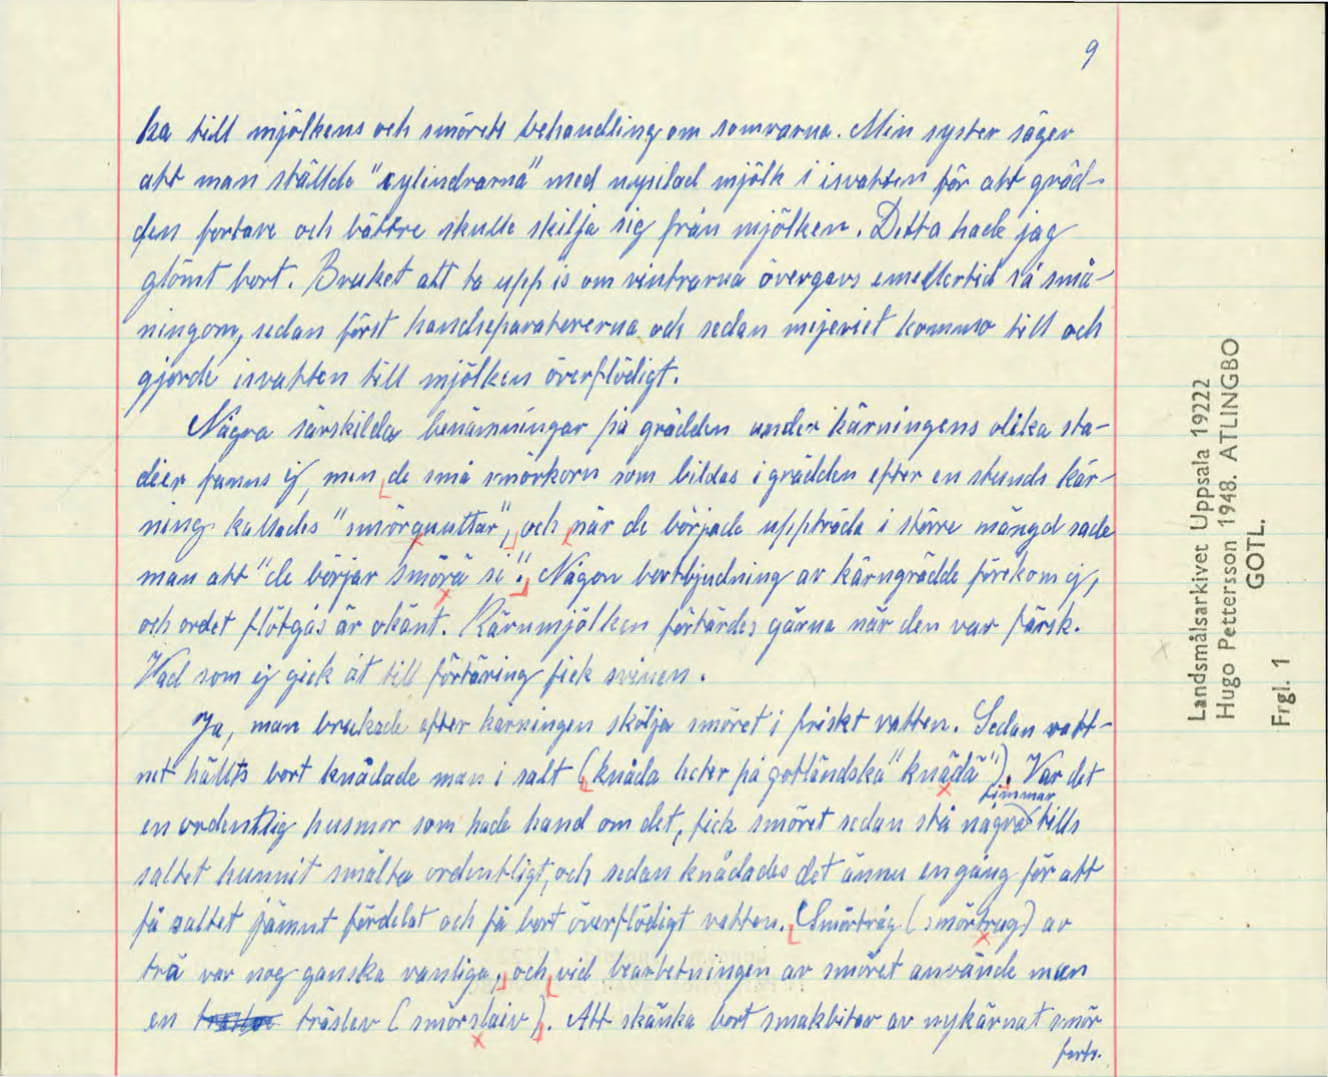 9
ka till mjölkens och smörets behandling om somrarna. Min syster säger
att man ställde "cylindrarna" med nysilad mjölk i isvatten för att gräd-
den fortare och bättre skulle skilja sig från mjölken. Detta hade jag
glömt bort. Bruket att ta upp is om vintrarna övergavs emellertid så små-
ningom, sedan först handseparatorerna och sedan mejeriet kommo till och
gjorde isvatten till mjölken överflödigt.
Några särskilda benämningar på grädden under kärningens olika sta-
dier fanns ej, men de små smörkorn som bildas i grädden efter en stunds kär-
ning kallades "smörgnuttar", och när de började uppträda i större mängd sade
man att "de börjar smörä si". Någon bortbjudning av kärngrädde förekom ej,
och ordet flötgås är okänt. Kärnmjölken förtärdes gärna när den var färsk.
Vad som ej gick åt till förtäring fick svinen.
Ja, man brukade efter kärningen skölja smöret i friskt vatten. Sedan vatt-
net hällts bort knådade man i salt (knåda heter på gotländska "knådä"). Var det
en ordentlig husmor som hade hand om det, fick smöret sedan stå några timmar tills
saltet hunnit smälta ordentligt, och sedan knådades det ännu en gång för att
få saltet jämnt fördelat och få bort överflödigt vatten. Smörtråg (smörtrug) av
trä var nog ganska vanliga, och vid bearbetningen av smöret använde man
en träslev (smörslaiv). Att skänka bort smakbitar av nykärnat smör
forts.
Landsmålsarkivet Uppsala 19222
Hugo Pettersson 1948. ATLINGBO
GOTL.
Frgl. 1